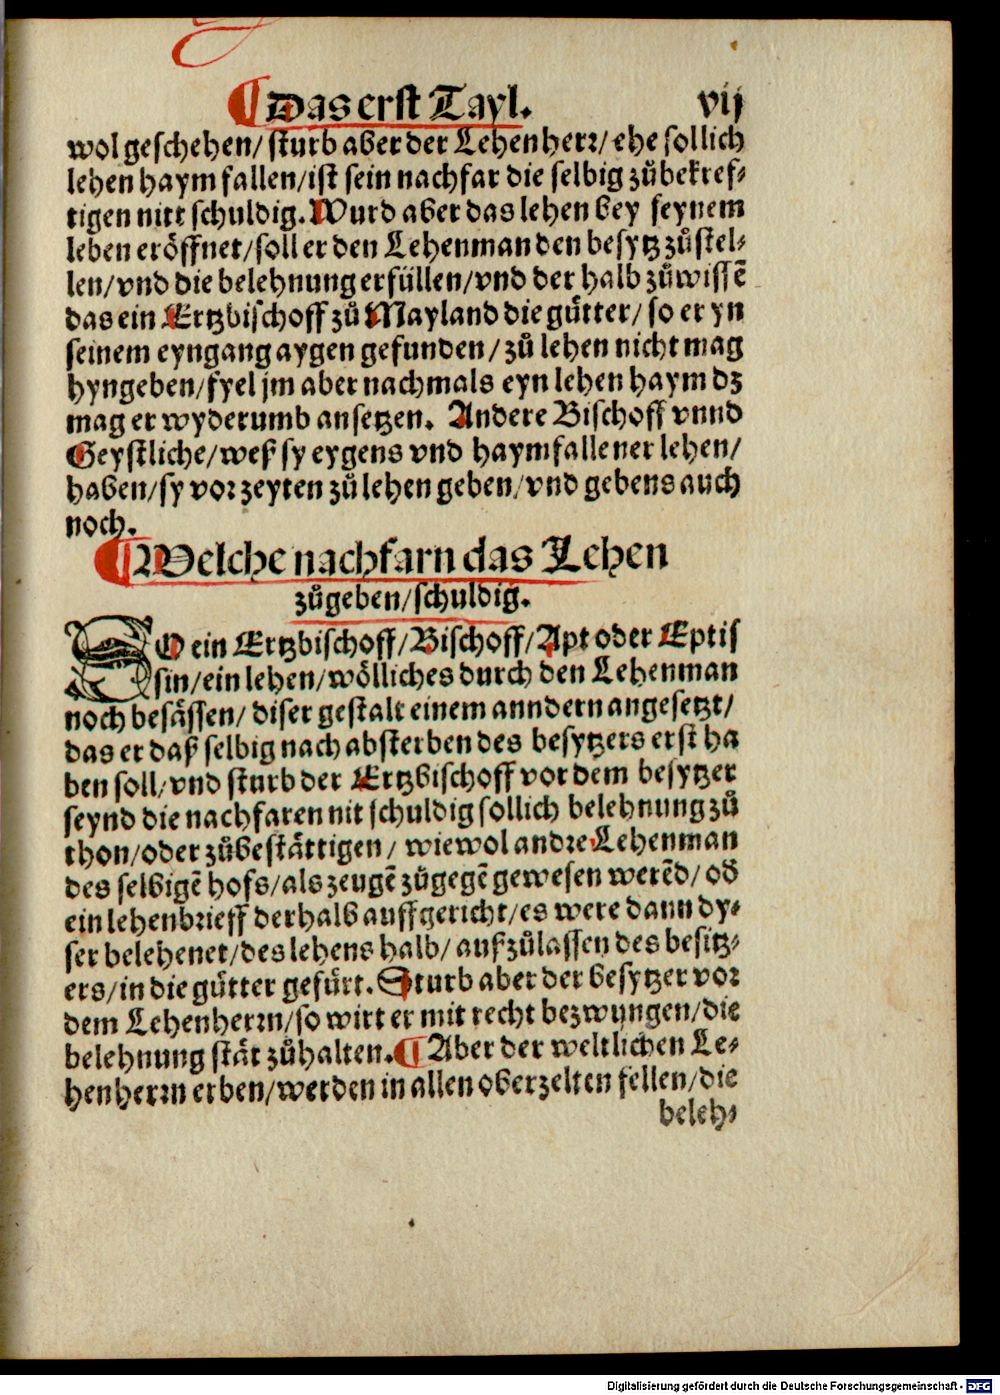 ¶Das erst Tayl. vij
wol geschehen/ sturb aber der Lehen herr/ ehe sollich
lehen haym fallen/ist sein nachfar die selbig zůbekref⸗
tigen nitt schuldig. Wurd aber das lehen bey seynem
leben eröffnet/soll er den Lehenman den besytz zůstel⸗
len/vnd die belehnung erfüllen/vnd der halb zůwissē
das ein Ertzbischoff zů Mayland die gůtter/ so er yn
seinem eyngang aygen gefunden/ zů lehen nicht mag
hyngeben/fyel jm aber nachmals eyn lehen haym dz
mag er wyderumb ansetzen. Andere Bischoff vnnd
Geystliche/weß sy eygens vnd haymfallener lehen/
haben/sy vor zeyten zů lehen geben/vnd gebens auch
noch.
¶Welche nachfarn das Lehen
zůgeben/schuldig.
SO ein Ertzbischoff/Bischoff/Apt oder Eptis
sin/ein lehen/wölliches durch den Lehenman
noch besässen/ diser gestalt einem anndern angesetzt/
das er daß selbig nach absterben des besytzers erst ha
ben soll/vnd sturb der Ertzbischoff vor dem besytzer
seynd die nachfaren nit schuldig sollich belehnung zů
thon/oder zůbestättigen/ wiewol andre Lehenman
des selbigē hofs/als zeugē zůgegē gewesen werēd/ od̄
ein lehenbrieff derhalb auffgericht/es were dann dy⸗
ser belehenet/des lehens halb/ aufzůlassen des besitz⸗
ers/in die gůtter gefůrt. Sturb aber der besytzer vor
dem Lehenherrn/so wirt er mit recht bezwungen/die
belehnung stät zůhalten. ¶Aber der weltlichen Le⸗
henherrn erben/werden in allen oberzelten fellen/die
beleh⸗
Digitalisierung gefördert durch die Deutsche Forschungsgemeinschaft - DFG